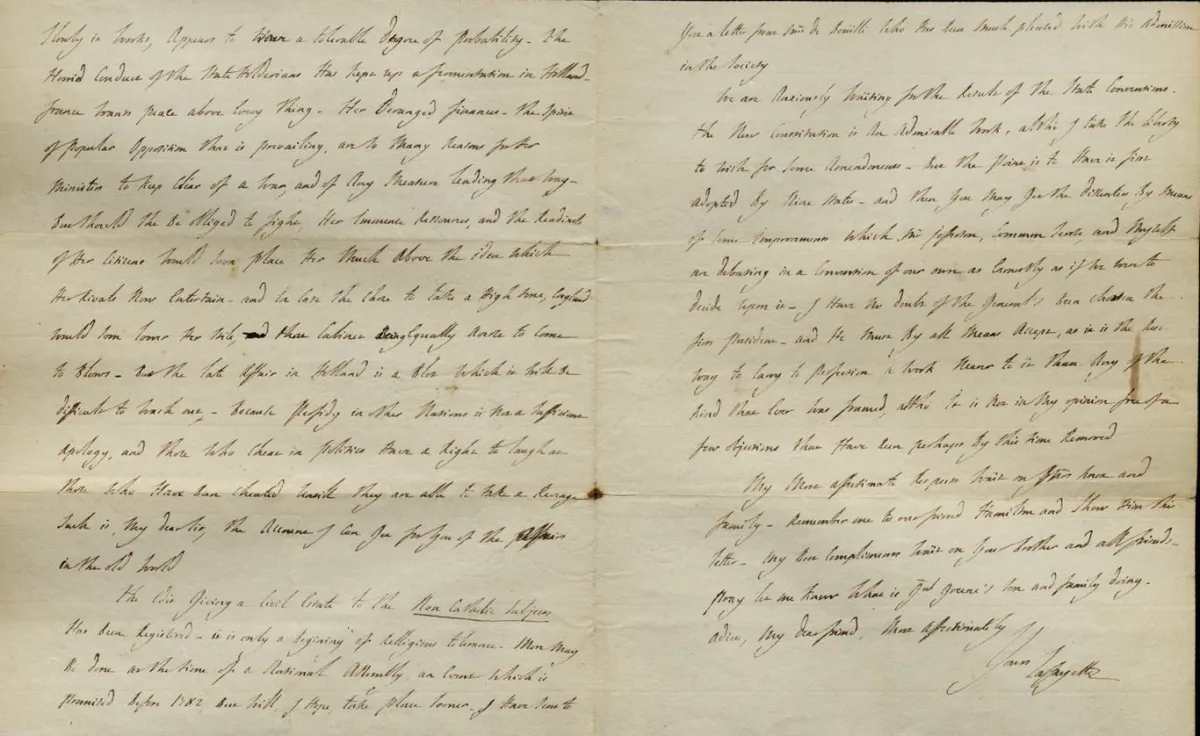 Slowly it works, Appears to Have a tolerable Degree of Probability - The
Horrid Conduct of the Stathalderians Has Kept up a fromentation in Holland -
france wants peace above Every thing - Her Deranged finances - the Spirit
of Popular Opposition that is prevailing, are so Many Reasons for Her
Ministers to Keep Clear of a War, and of Any Measure leading that way -
But should she Be obliged to fight, Her immense Ressources, and the Readiness
of Her Citizens Would soon place Her Much Above the idea which
Her Rivals Now Entertain - and in Case she Chose to take a High tone, England
would soon lower Her , and their Cabinet Being Equally Averse to Come
to Blows - But the late Affair in Holland is a Blot Which it will Be
difficult to wash out, - Because Perfidy in other Nations is Not a Sufficient
Apology, and those Who Cheat in Politics Have a Right to laugh at
those Who Have Been Cheated Untill they are able to take a Revenge
Such is, My dear Sir, the Account I Can Give for You of the Affairs
in the old World
The Edict Giving a Civil Estate to the Non Catholic Subjects
Has Been Registered - it is only a begining of Relligious tolerance - More May
Be done at the time of a National Assembly, an Event Which is
promised Before 1792, But will, I Hope, take place sooner - I Have Sent to
You a letter from de Who Has Been Much pleased with His Admission
in the Society
We are Anxiously Waiting for the Result of the State Conventions -
the New Constitution is An Admirable Work, altho' I take the liberty
to wish for Some Amendments - But the point is to Have it first
adopted By Nine States - and then You May Get the Dissenters By Means
of Some Improvements Which Mr Jefferson, Common Sense, and Myself
are debating in a Convention of our own as Earnestly as if We were to
decide Upon it - I Have No doubt of the General's Been chosen the
first President - and He Must By all Means Accept, as it is the best
way to Carry to Perfection a Work Nearer to it than Any of the
kind that Ever was framed, altho it is Not in My opinion free from
few objections that Have Been perhaps By this time Removed
My Most affectionate Respects Wait on Mrs Knox and
family - Remember me to our friend Hamilton and Show Him this
letter - My Best Compliments Wait on Your Brother and all friends -
Pray let me Know What is Gnl Greene's Son and family doing -
Adieu, My dear friend, Most affectionately
Yours
Lafayette